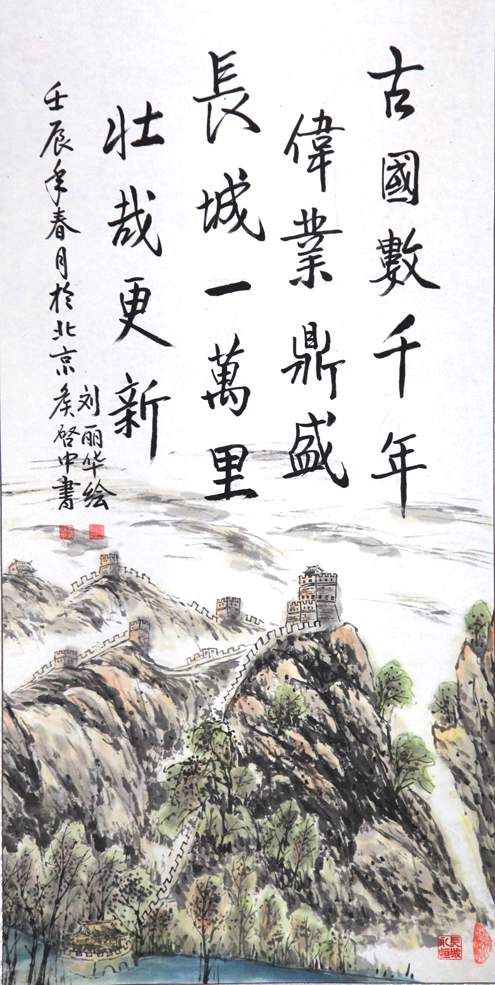 古國數千年
偉業鼎盛
長城一萬里
壮哉更新
刘丽华绘
壬辰年春月於北京侯啓中書